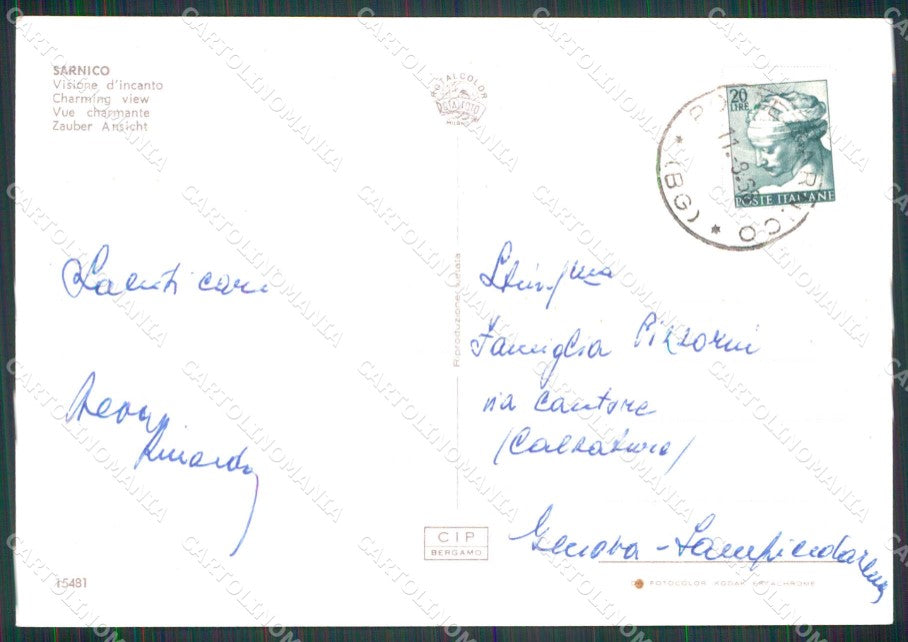 SARNICO
Visione d'incanto
Charming view
Vue charmante
Zauber Ansicht
ROTALCOLOR
ROTALFOTO
MILANO
20
LIRE
POSTE ITALIANE
(BG)
Saluti cari
Rinardo
Riproduzione vietata
Famiglia Pizzorni
via Cantore
(Calzature)
Genova - Sampierdarena
CIP
BERGAMO
15481
FOTOCOLOR KODAK EKTACHROME
CARTOLINOMANIA